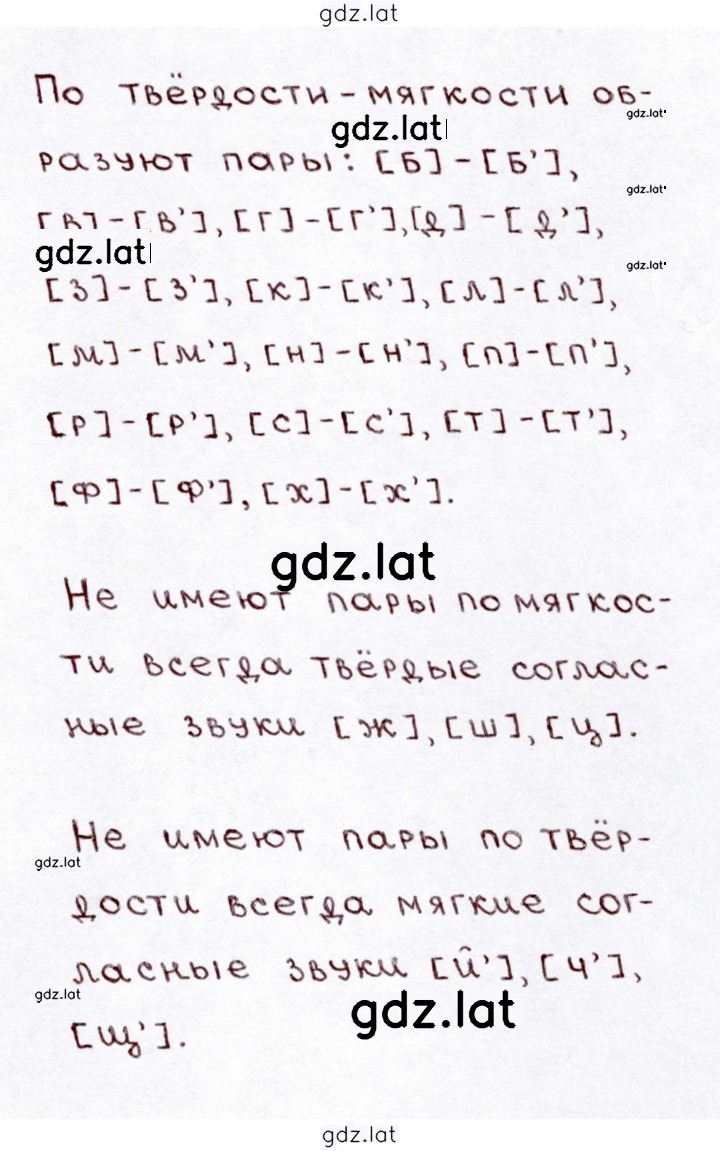 gdz.lat
По твёрдости-мягкости об-
gdz.lat
gdz.lat
разуют пары: [б]-[б’],
gdz.lat
[в]-[в’], [г]-[г’], [д]-[д’],
gdz.lat
gdz.lat
[з]-[з’], [к]-[к’], [л]-[л’],
[м]-[м’], [н]-[н’], [п]-[п’],
[р]-[р’], [с]-[с’], [т]-[т’],
[ф]-[ф’], [х]-[х’].
gdz.lat
Не имеют пары по мягкос-
ти всегда твёрдые соглас-
ные звуки [ж], [ш], [ц].
Не имеют пары по твёр-
gdz.lat
дости всегда мягкие сог-
ласные звуки [й’], [ч’],
gdz.lat
gdz.lat
[щ’].
gdz.lat